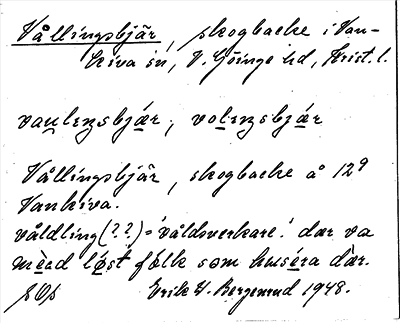 Vållingsbjär, skogbacke i Van-
kiva sn, V. Göinge hd, Krist. l.
vaulensbjær, volensbjær
Vållingsbjär, skogbacke å 12⁹
Vankiva.
våldling (??) = 'våldsverkare'. dær va
mèed løst fålk som huséra dær.
Erik W. Bergenrud 1948.